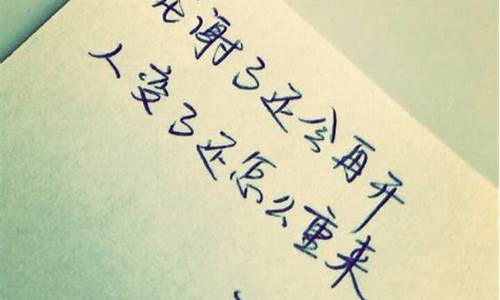 花谢了还会再开
人变了还怎么重来